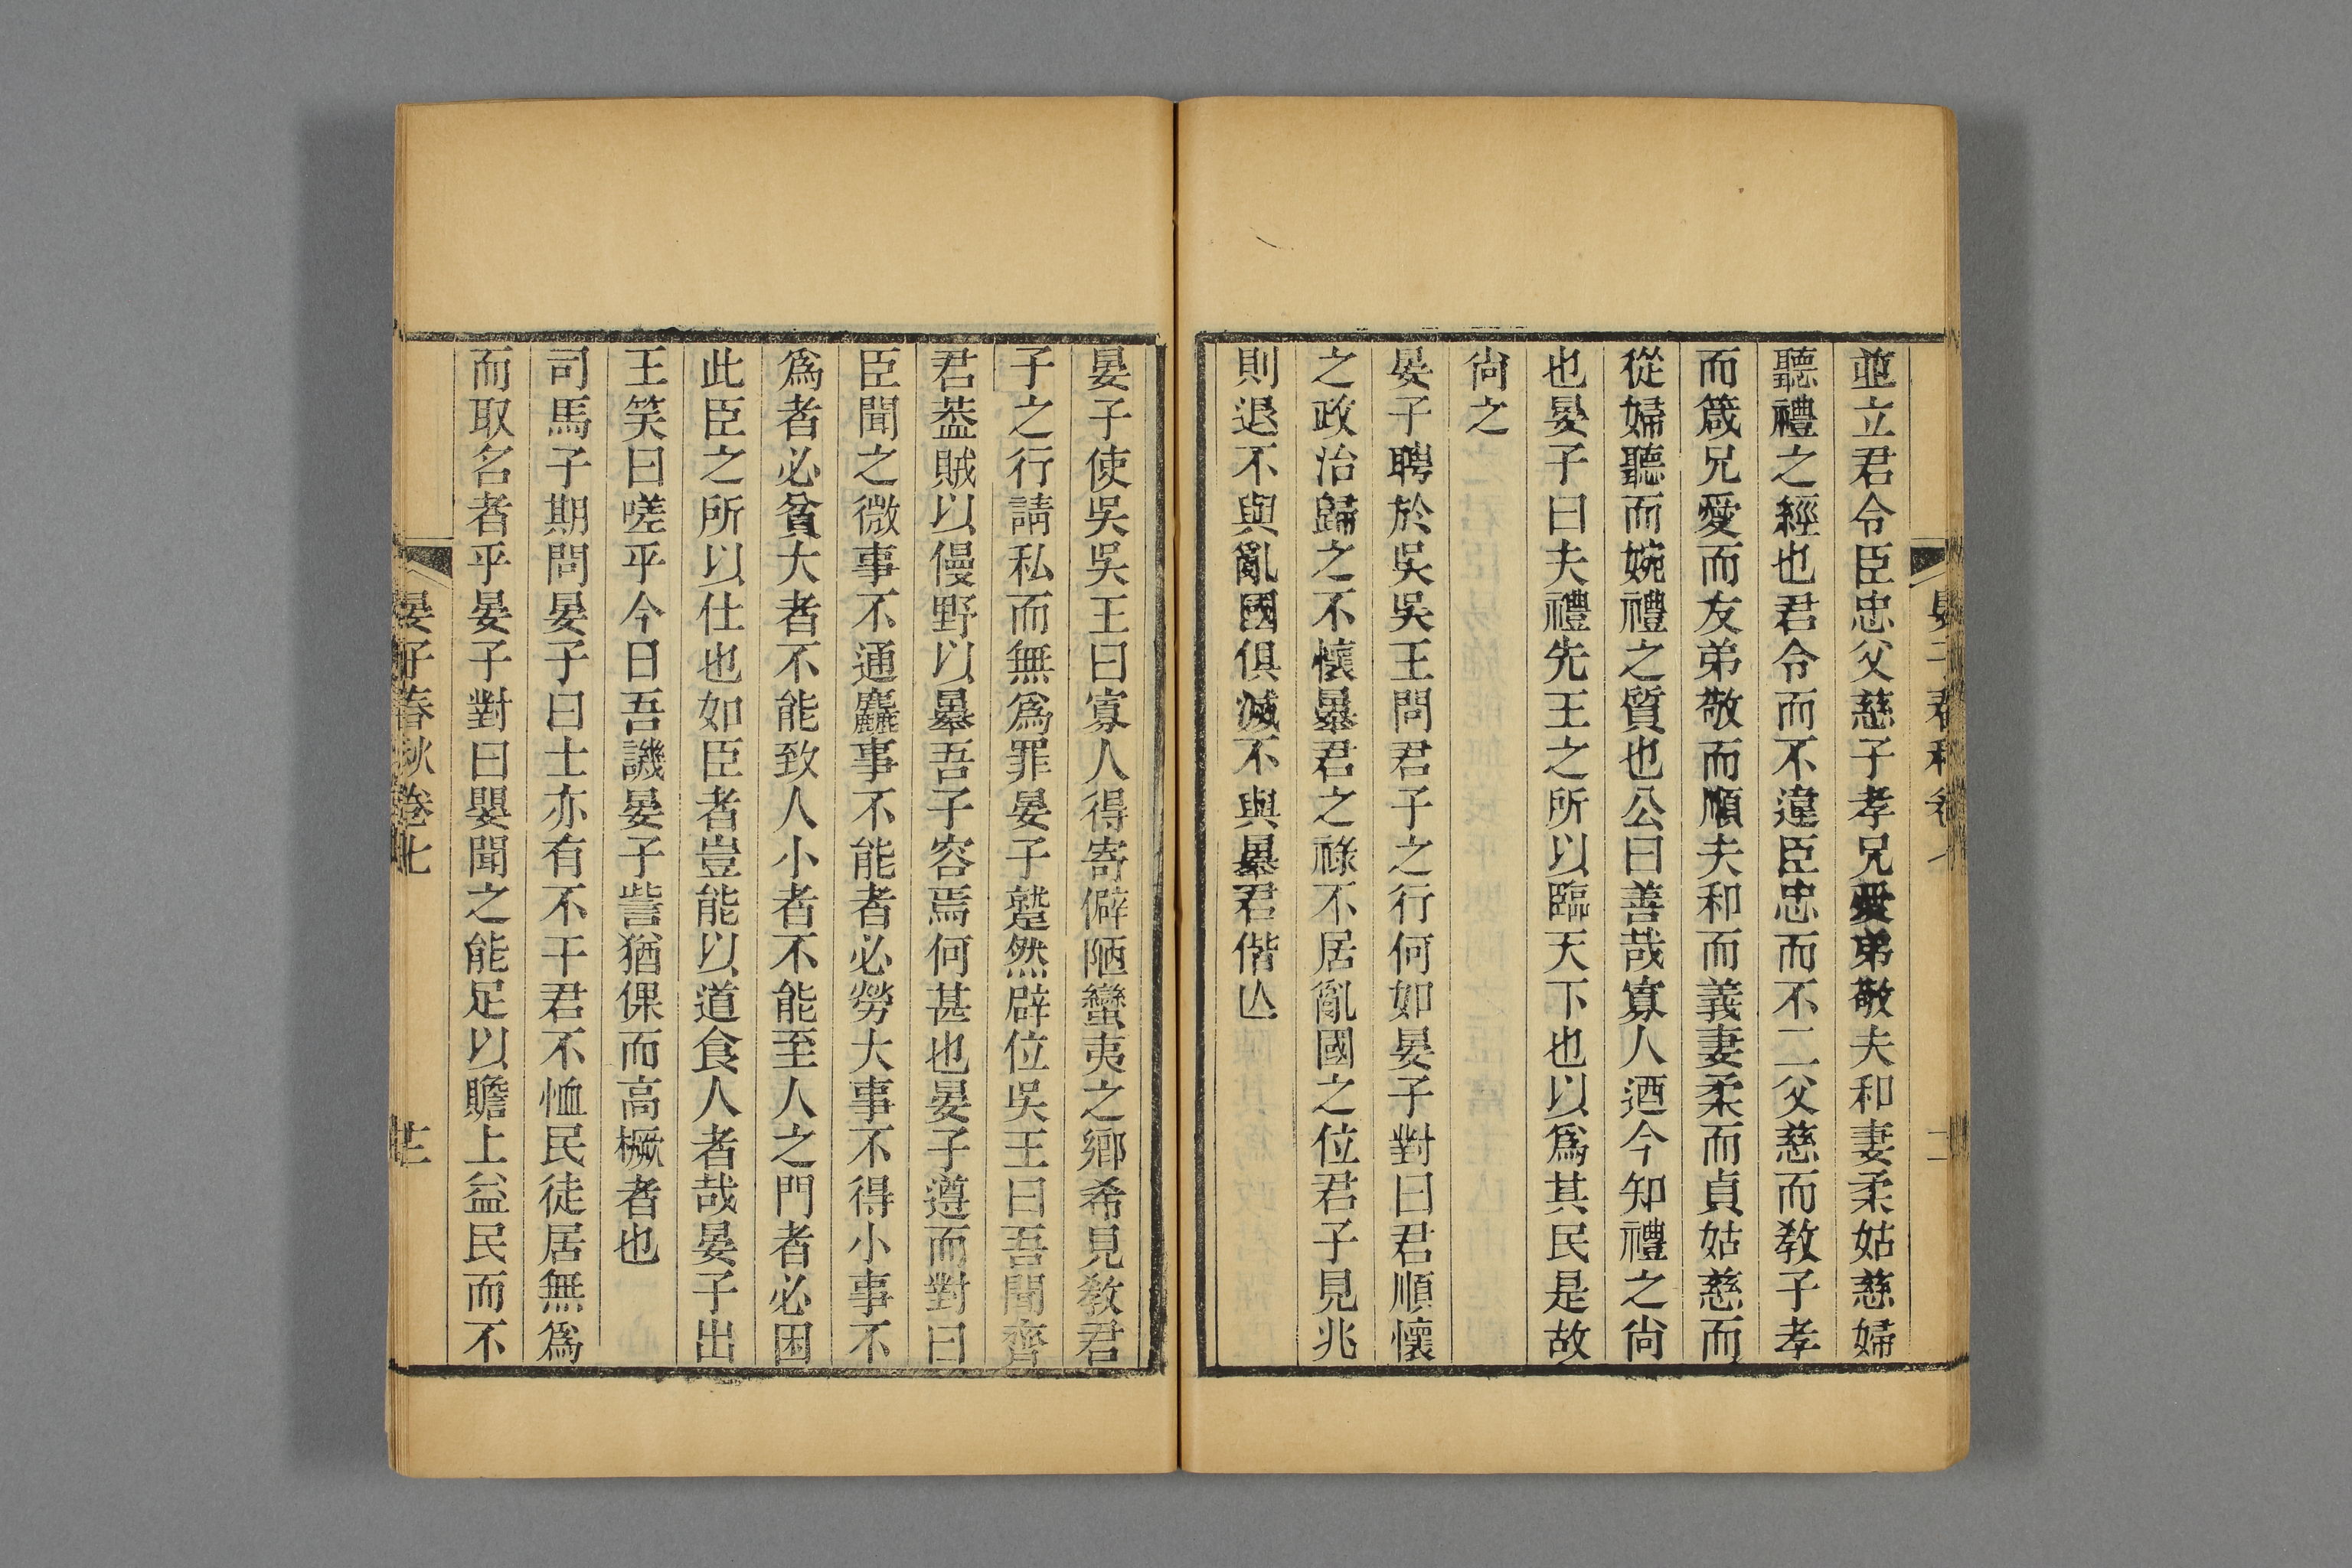 並立君令臣忠父慈子孝兄愛弟敬夫和妻柔姑慈婦
聽禮之經也君令而不違臣忠而不二父慈而敎子孝
而箴兄愛而友弟敬而順夫和而義妻柔而貞姑慈而
從婦聽而婉禮之質也公曰善哉寡人迺今知禮之尙
也晏子曰夫禮先王之所以臨天下也以爲其民是故
尙之
晏子聘於吳吳王問君子之行何如晏子對曰君順懷
之政治歸之不懷暴君之祿不居亂國之位君子見兆
則退不與亂國俱滅不與暴君偕亾
晏子使吳吳王曰寡人得寄僻陋蠻夷之鄉希見敎君
子之行請私而無爲罪晏子蹵然辟位吳王曰吾聞齊
君葢賊以僈野以暴吾子容焉何甚也晏子遵而對曰
臣聞之微事不通麤事不能者必勞大事不得小事不
爲者必貧大者不能致人小者不能至人之門者必困
此臣之所以仕也如臣者豈能以道食人者哉晏子出
王笑曰嗟乎今日吾譏晏子訾猶倮而高橛者也
司馬子期問晏子曰士亦有不干君不恤民徒居無爲
而取名者乎晏子對曰嬰聞之能足以贍上益民而不
晏子春秋卷七